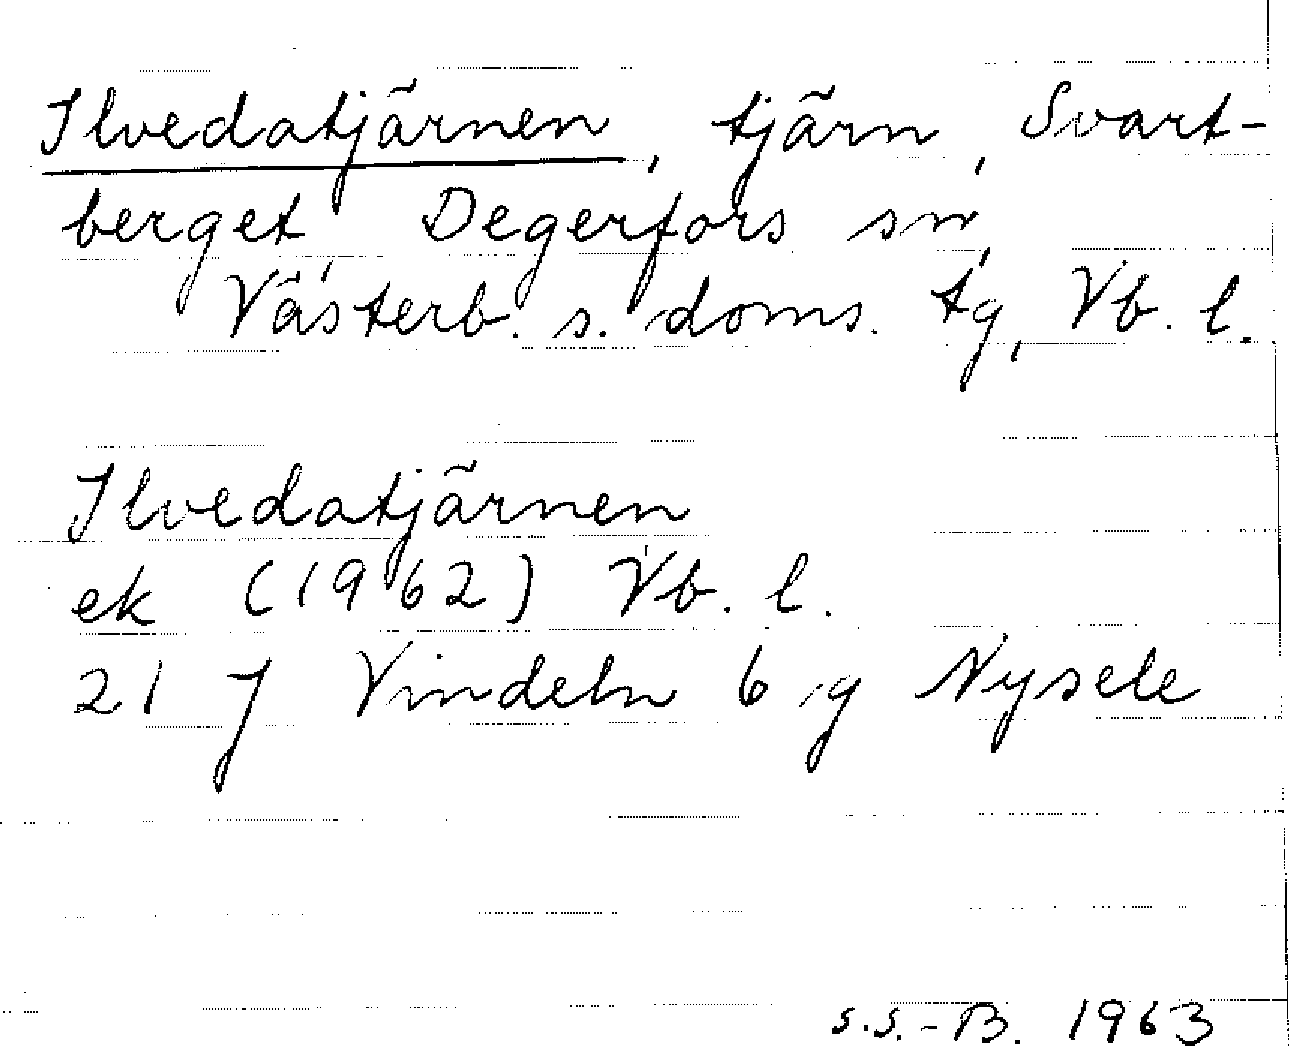 Ilvedatjärnen, tjärn, Svart-
berget, Degerfors sn,
Västerb. s. doms. tg, Vb. l.
Ilvedatjärnen
ek (1962) Vb. l.
21 J Vindeln 6 g Nysele
S.S.-B. 1963